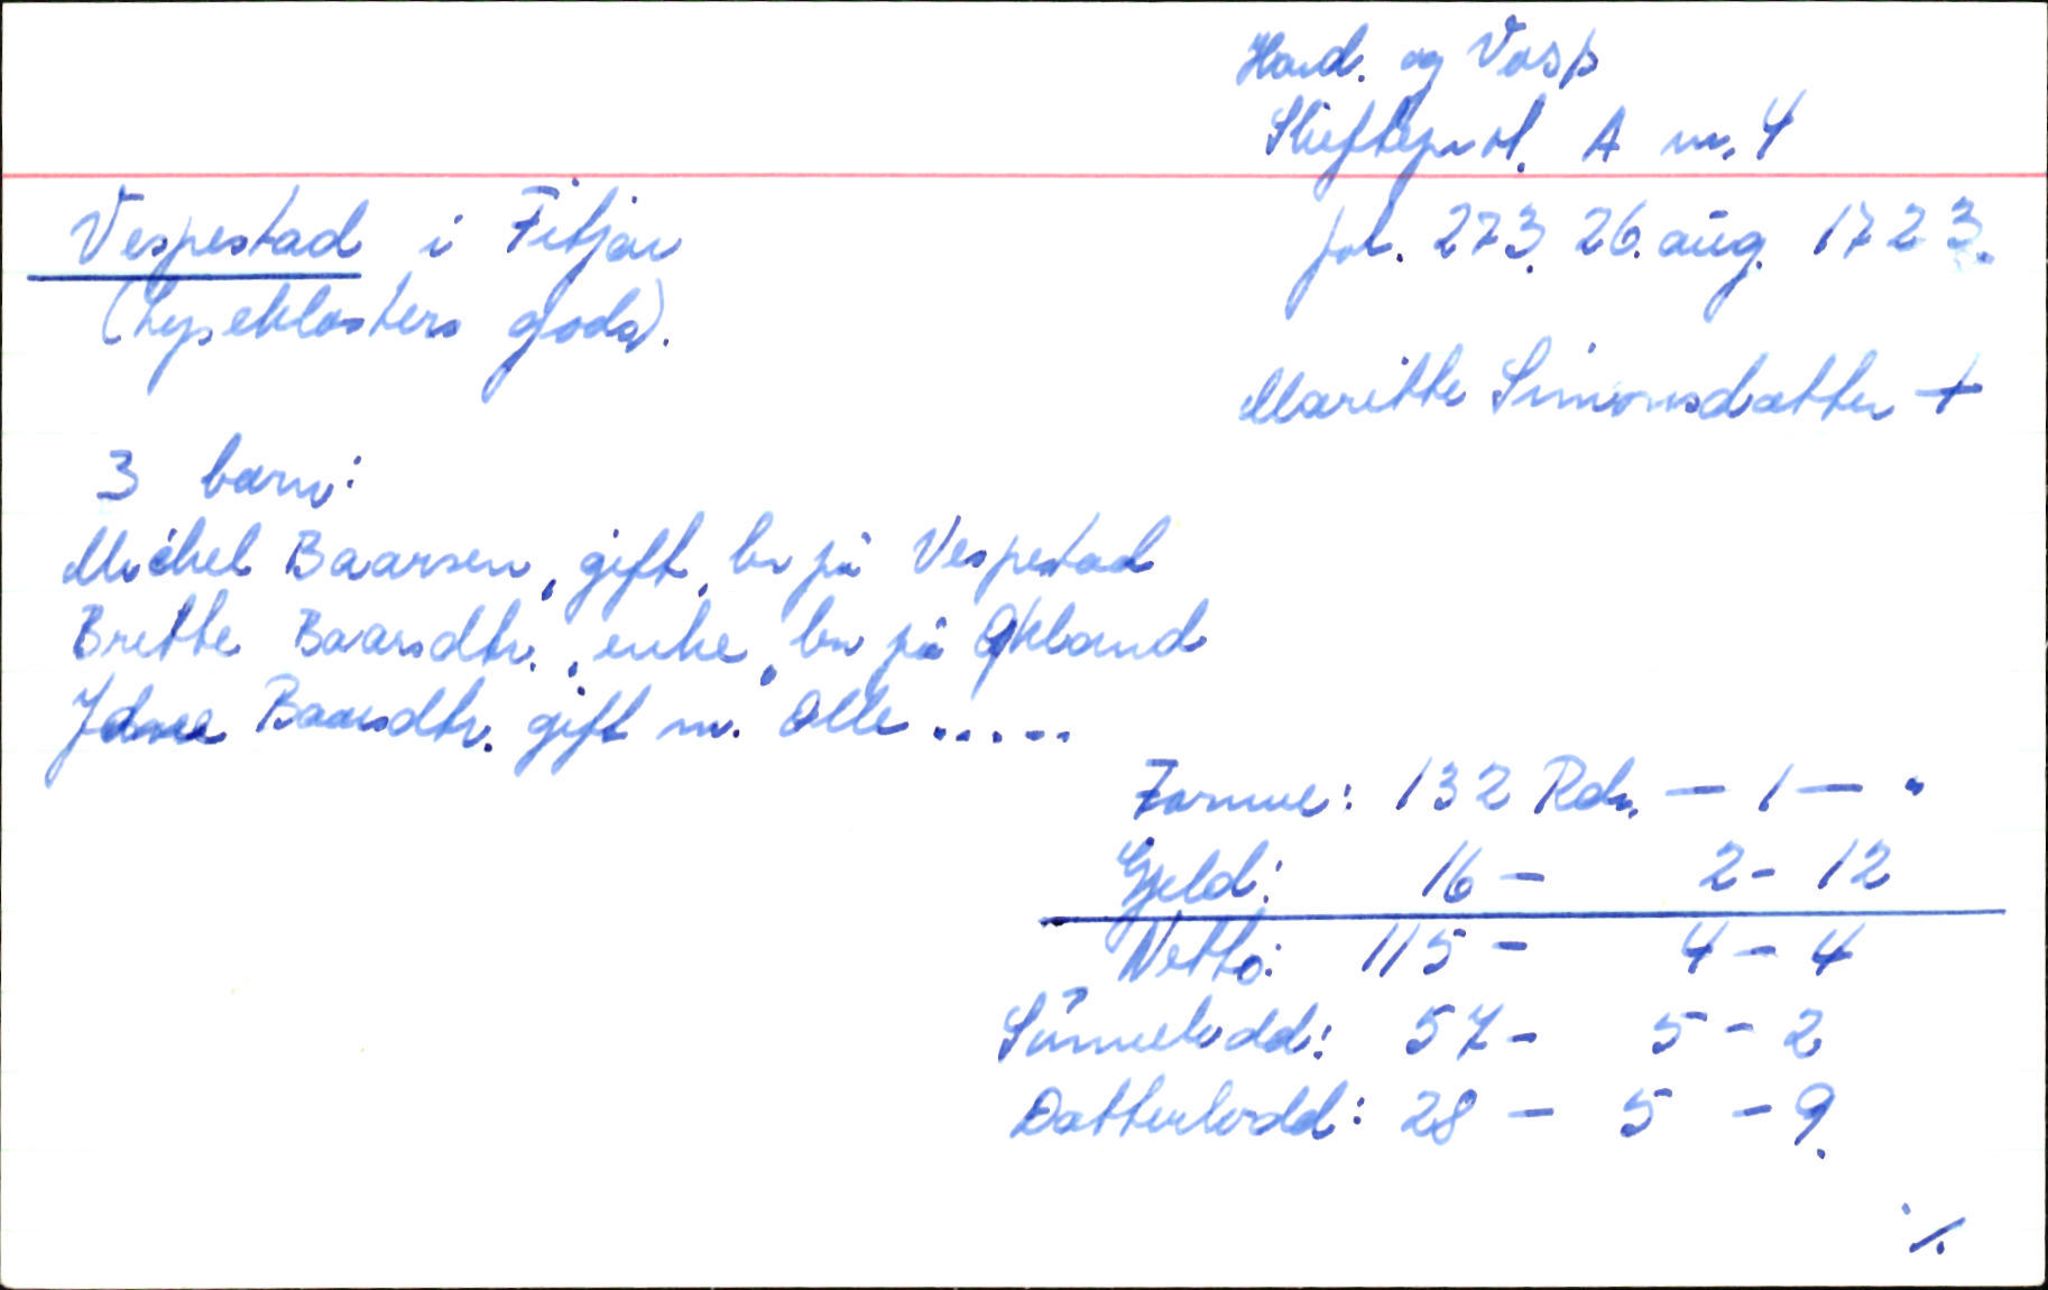 Hard. og Voss
Skifteprot. A nr. 4
Vespestad i Fitjar
fol. 273. 26. aug. 1723.
(Lyseklosters gods).
Maritte Simonsdatter +
3 barn:
Michel Baarsen, gift, br på Vespestad
Britte Baarsdtr., enke, br på Økland
Baarsdtr. gift m. Olle .....
Formue: 132 Rdr. — 1 — "
Gjeld: 16 - 2 - 12
Netto: 115 - 4 - 4
Sønnelodd: 57 - 5 - 2
Datterlodd: 28 - 5 - 9.
./.